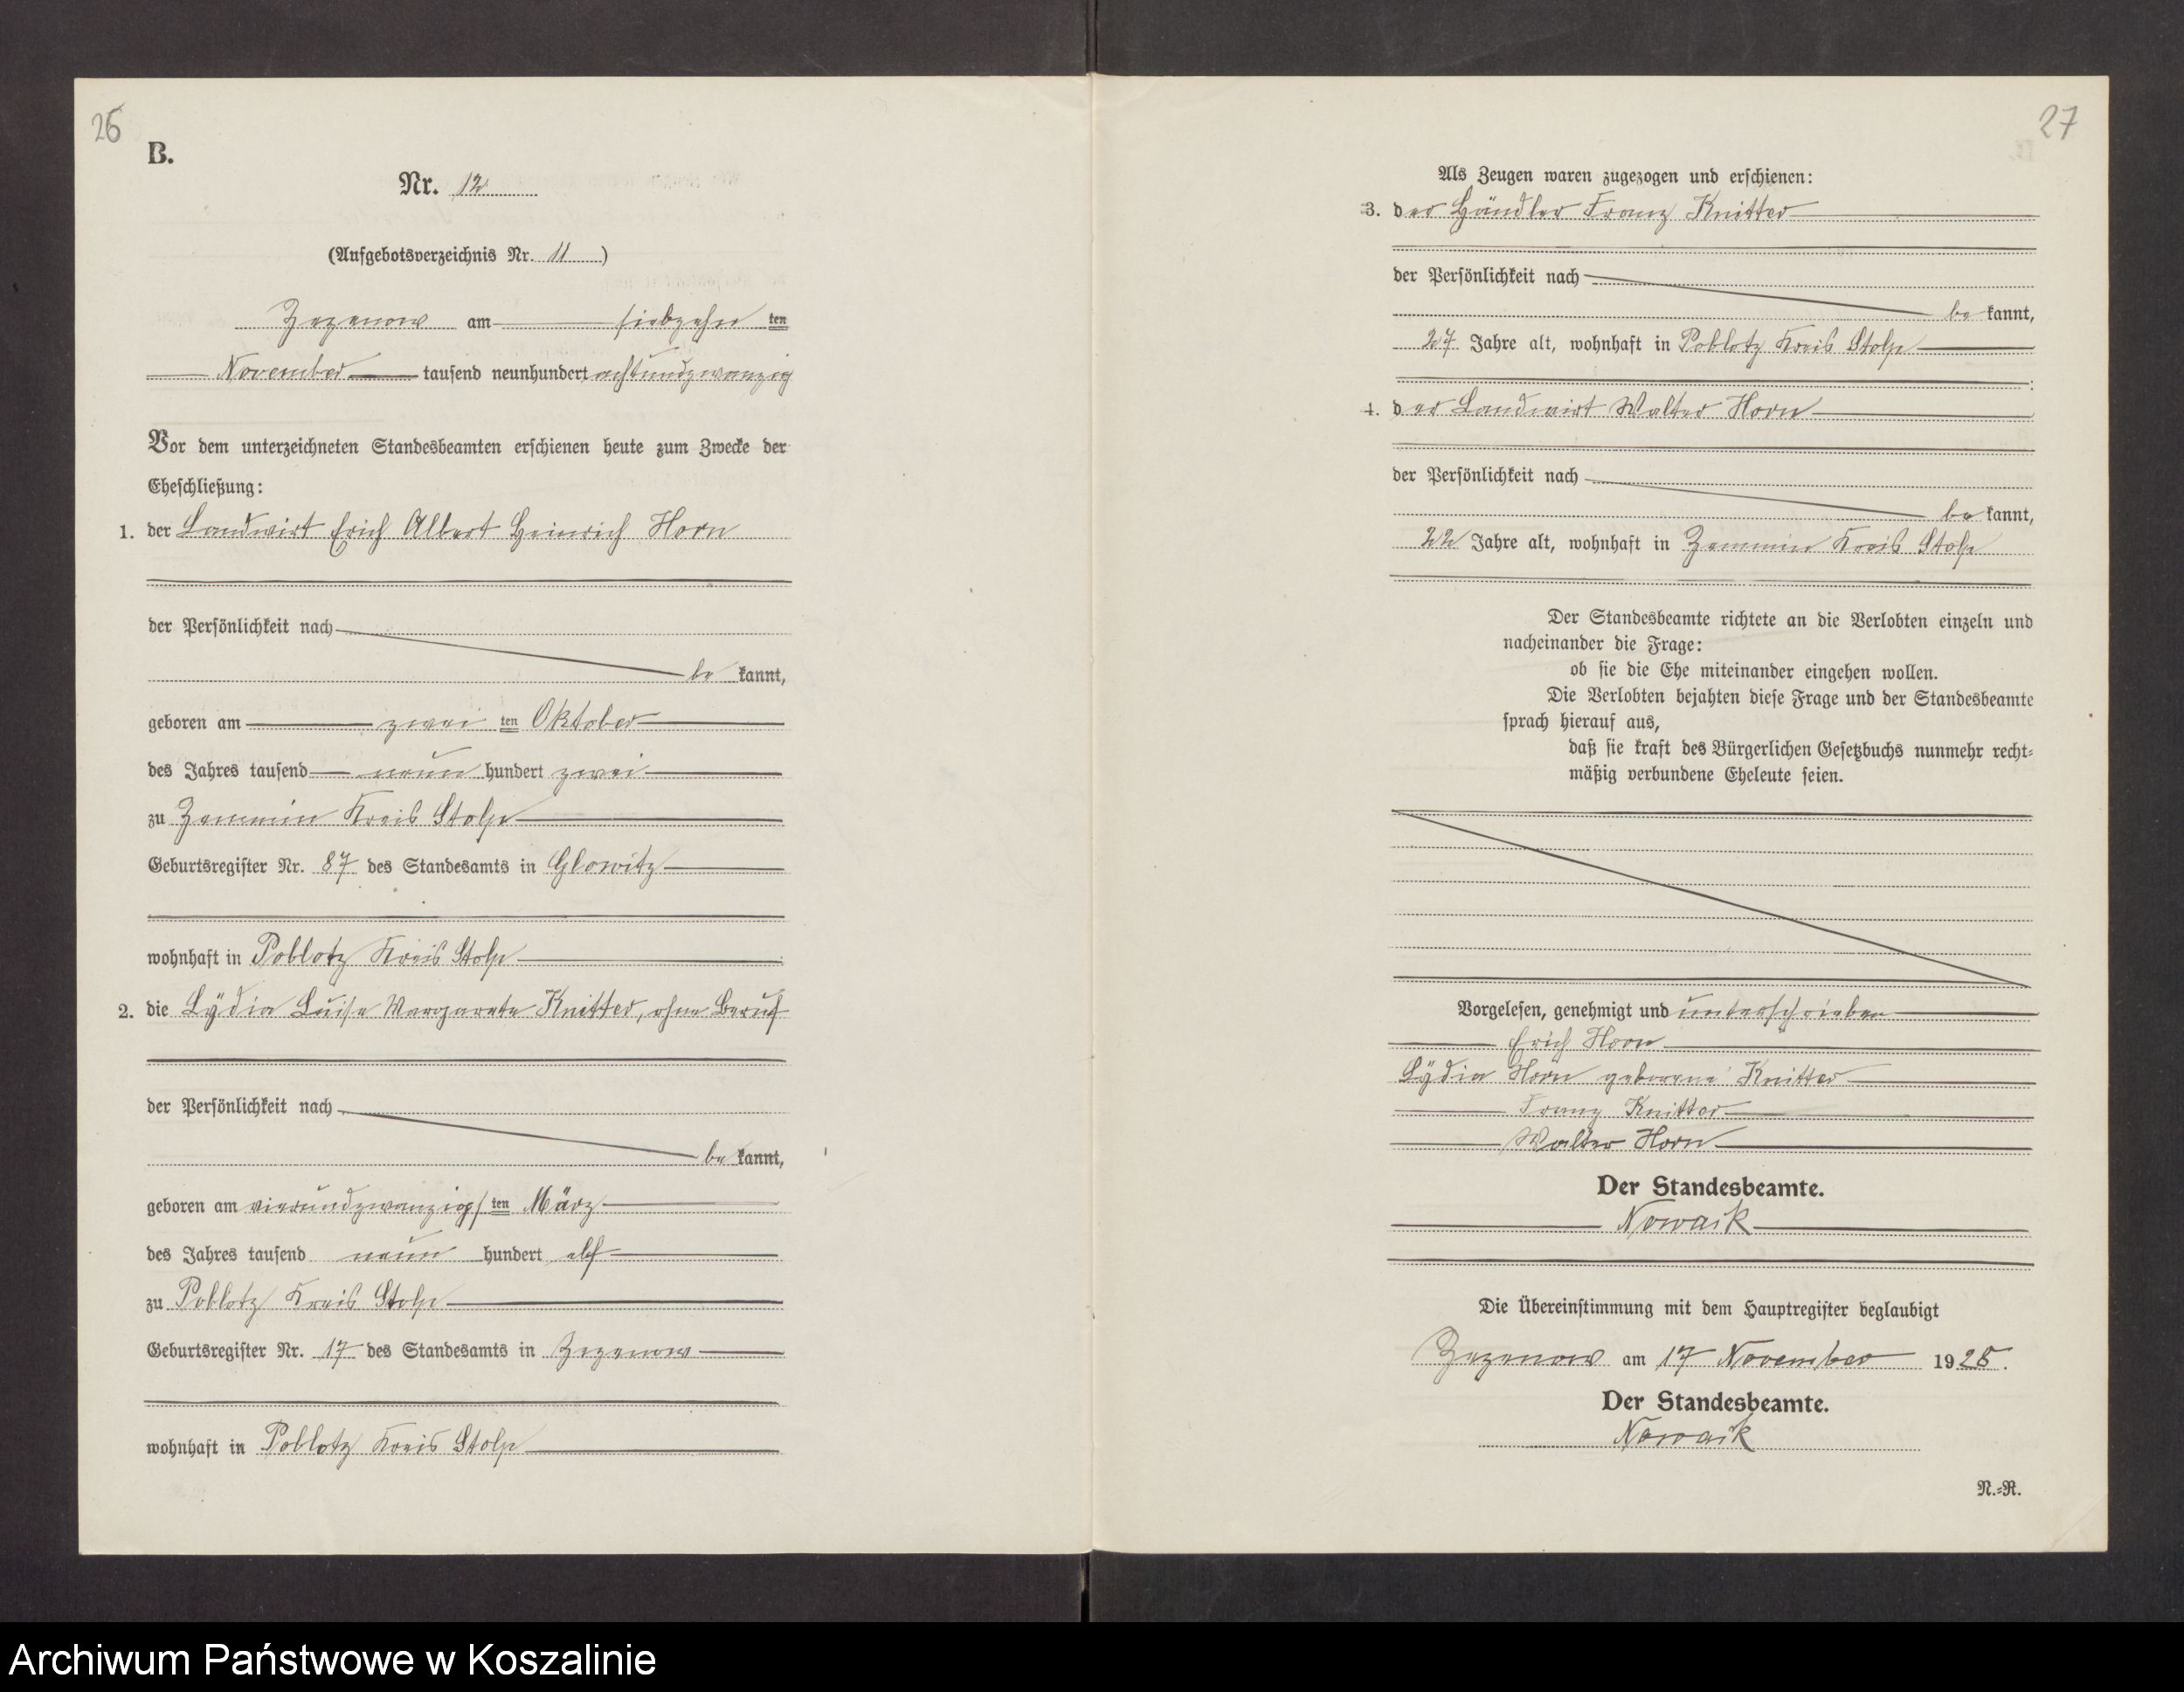 26
B.
Nr. 12
(Aufgebotsverzeichnis Nr. 11)
Zezenow am siebzehn ten
November tausend neunhundert achtundzwanzig
Vor dem unterzeichneten Standesbeamten erschienen heute zum Zwecke der
Eheschließung:
1. der Landwirt Erich Albert Heinrich Horn
der Persönlichkeit nach
be kannt,
geboren am zwei ten Oktober
des Jahres tausend neun hundert zwei
zu Zemmin Kreis Stolp
Geburtsregister Nr. 87 des Standesamts in Glowitz
wohnhaft in Poblotz Kreis Stolp
2. die Lydia Luise Margarete Knitter, ohne Beruf
der Persönlichkeit nach
be kannt,
geboren am vierundzwanzigs ten März
des Jahres tausend neun hundert elf
zu Poblotz Kreis Stolp
Geburtsregister Nr. 17 des Standesamts in Zezenow
wohnhaft in Poblotz Kreis Stolp
27
Als Zeugen waren zugezogen und erschienen:
3. der Händler Franz Knitter
der Persönlichkeit nach
be kannt,
27 Jahre alt, wohnhaft in Poblotz Kreis Stolp
4. der Landwirt Walter Horn
der Persönlichkeit nach
be kannt,
22 Jahre alt, wohnhaft in Zemmin Kreis Stolp
Der Standesbeamte richtete an die Verlobten einzeln und
nacheinander die Frage:
ob sie die Ehe miteinander eingehen wollen.
Die Verlobten bejahten diese Frage und der Standesbeamte
sprach hierauf aus,
daß sie kraft des Bürgerlichen Gesetzbuchs nunmehr recht-
mäßig verbundene Eheleute seien.
Vorgelesen, genehmigt und unterschrieben
Erich Horn
Lydia Horn geborene Knitter
Franz Knitter
Walter Horn
Der Standesbeamte.
Nowaik
Die Übereinstimmung mit dem Hauptregister beglaubigt
Zezenow am 17 November 1928.
Der Standesbeamte.
Nowaik
N.-R.
Archiwum Państwowe w Koszalinie